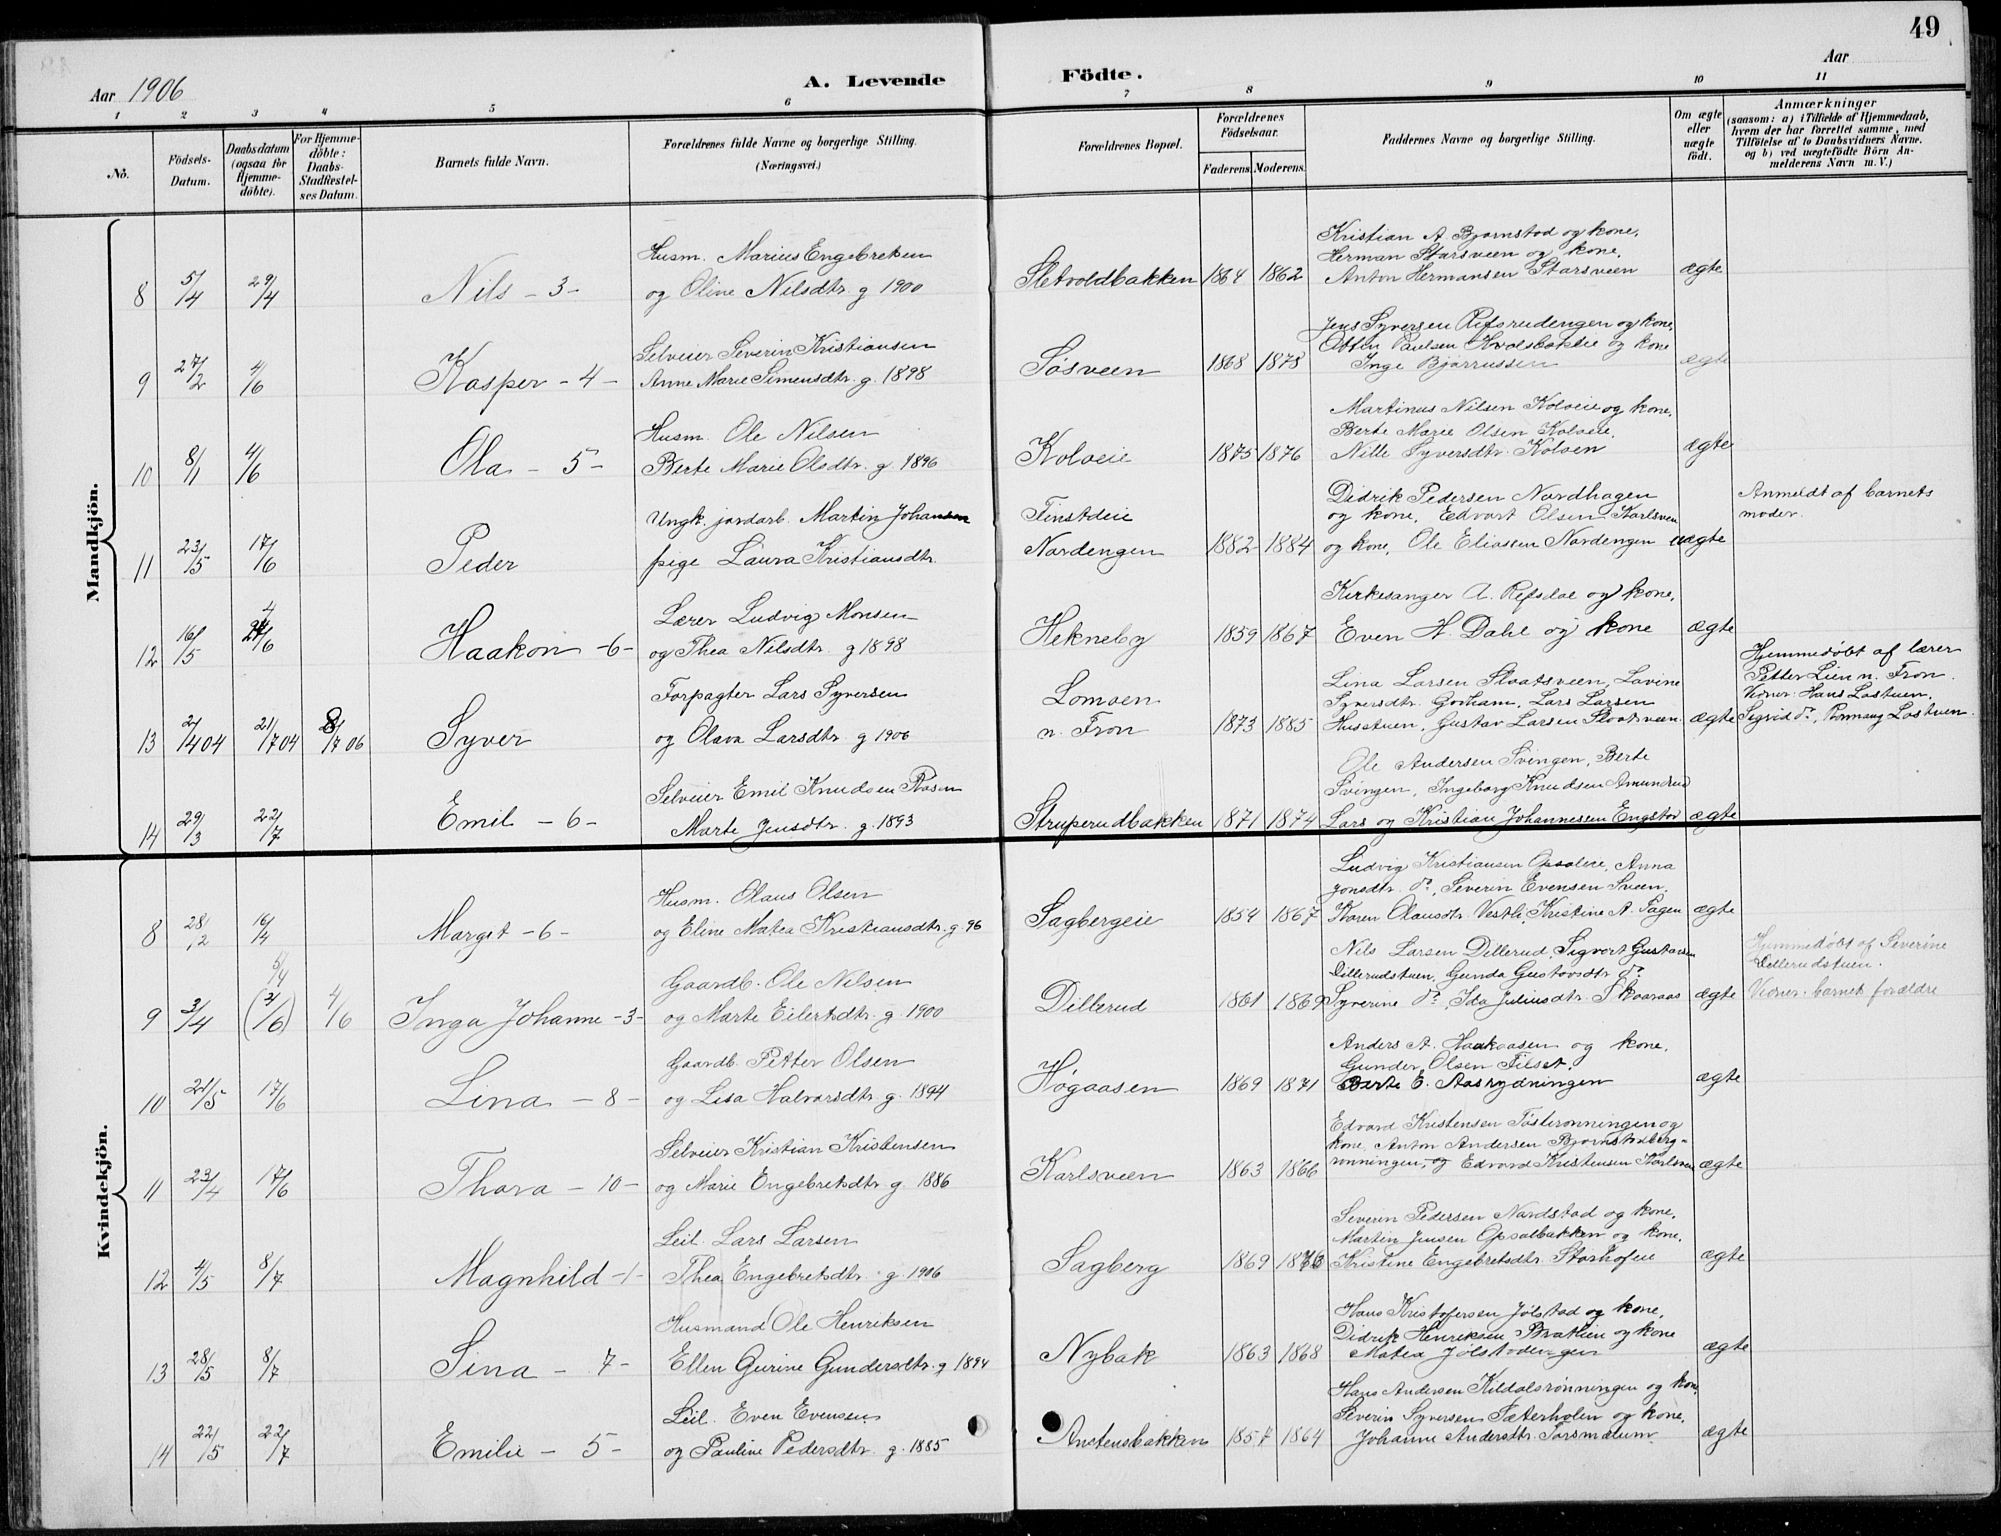 49
Aar 1906
A. Levende
Födte.
Aar
1 2 3 4 5 6 7 8 9 10 11
No.
Födsels-Datum.
Daabsdatum (ogsaa for Hjemme-döbte).
For Hjemme-döbte: Daabs-Stadfæstel-ses Datum.
Barnets fulde Navn.
Forældrenes fulde Navne og borgerlige Stilling. (Næringsvei.)
Forældrenes Bopæl.
Forældrenes Födselsaar.
Faderens. Moderens.
Faddernes Navne og borgerlige Stilling.
Om ægte eller uægte födt.
Anmærkninger
(saasom: a) i Tilfælde af Hjemmedaab, hvem der har forrettet samme, med Tilföielse af to Daabsvidners Navne. og b) ved uægtefödte Börn An-melderens Navn m. V.)
Mandkjön.
Kristian A. Bjørnstad og kone,
Husm. Marius Engebretsen
Herman Storsveen og kone,
8 5/4 29/4 Nils - 3 - og Oline Nilsdtr. g 1900 Sletvoldbakken 1864 1862 Anton Hermansen Storsveen ægte
Jens Syversen Refsrudengen og kone,
Selveier Severin Kristiansen
Paulsen og kone
9 27/2 4/6 Kasper - 4 - Anne Marie Simensdtr. g. 1898 Søsveen 1868 1878 Inge Bjørnussen ægte
Martinus Nilsen Kolveie og kone,
Husm. Ole Nilsen
Berte Marie Olsen Kolveie,
10 8/1 4/6 Ola - 5 - Berte Marie Olsdtr. g. 1896 Kolveie 1875 1876 Nille Syversdtr. Kolven ægte
Didrik Pedersen Nordhagen
Anmeldt af barnets
Ungk. jordarb. Martin Johansen
Finstdeie
og kone, Edvart Olsen Karlsveen
moder.
11 23/5 17/6 Peder pige Laura Kristiansdtr. Nordengen 1882 1884 og kone, Ole Eliassen Nordengen uægte
Kirkesanger A. Refsdal og kone,
Lærer Ludvig Monsen
12 16/5 24/6 Haakon - 6 - og Thea Nilsdtr. g 1898 Hekneby 1859 1867 Even H. Dahl og kone ægte
Hjemmedøbt af lærer
Forpagter Lars Syversen
Lomoen
Lina Larsen Slaatsveen, Lovine
Petter Lien n. Fron.
Syversdtr. Gorham, Lars Larsen
Vidner: Hans Lostuen,
13 2/4 04 21/7 04 8/7 06 Syver og Olava Larsdtr. g 1906 n. Fron 1873 1885 Husstuen, Gustav Larsen Slaatsveen ægte Sigrid do, Ronnaug Lostuen.
Ole Andersen Svingen, Berte
Selveier Emil Knudsen Rosen
Svingen, Ingeborg Knudsen Amundrud
14 29/3 22/7 Emil - 6 - Marte Jensdtr. g. 1893 Struperudbakken 1871 1874 Lars og Kristian Johannessen Engstad ægte
Kvindekjön.
Ludvig Kristiansen Opsaleie, Anna
Husm. Olaus Olsen
Jonsdtr. do, Severin Evensen Sveen,
8 28/2 16/4 Marget - 6 - og Eline Matea Kristiansdtr. g. 96 Sagbergeie 1854 1867 Karen Olausdtr. Vestli, Kristine A. Hagen ægte
Nils Larsen Dillerud, Sigvart Gustavsen
Hjemmedøbt af Severine
Gaardb. Ole Nilsen
5/4
Dillerudstuen, Gunda Gustavsdtr. do
Dillerudstuen.
9 3/4 (3/6) 4/6 Inga Johanne - 3 - og Marte Eilertsdtr. g. 1900 Dillerud 1861 1869 Syverine do, Ida Juliusdtr. Skaaraas ægte Vidner: barnets forældre
Anders A. Haakaasen og kone,
Gaardb. Petter Olsen
Gunder Olsen Tilset,
10 21/5 17/6 Lina - 8 - og Lisa Halvorsdtr. g. 1894 Høgaasen 1869 1871 Berte E. Aasrydningen ægte
Edvard Kristensen Tøsterønningen og
Selveier Kristian Kristensen
kone, Anton Andersen Bjørnstadberg-
11 23/4 17/6 Thora - 10 - og Marie Engebretsdtr. g. 1886 Karlsveen 1863 1866 rønningen, og Edvard Kristensen Karlsveen ægte
Severin Pedersen Nordstad og kone,
Leil. Lars Larsen
Martin Jensen Opsalbakken og kone,
12 4/5 8/7 Magnhild - 1 - Thea Engebretsdtr. g. 1906 Sagberg 1869 Kristine Engebretsdtr. Storhofeie ægte
Hans Kristofersen Jølstad og kone,
Husmand Ole Henriksen
Didrik Henriksen Bratlien og kone
13 28/5 8/7 Sina - 7 - Ellen Gurine Gundersdtr. g 1894 Nybak 1863 1868 Matea Jølstadengen ægte
Hans Andersen Kildalsrønningen og kone,
Leil. Even Evensen
Severin Syversen Sæterholen og kone,
14 22/5 22/7 Emilie - 5 - og Pauline Pedersdtr. g. 1885 Anstensbakken 1857 1864 Johanne Andersdtr. Torsmælum. ægte